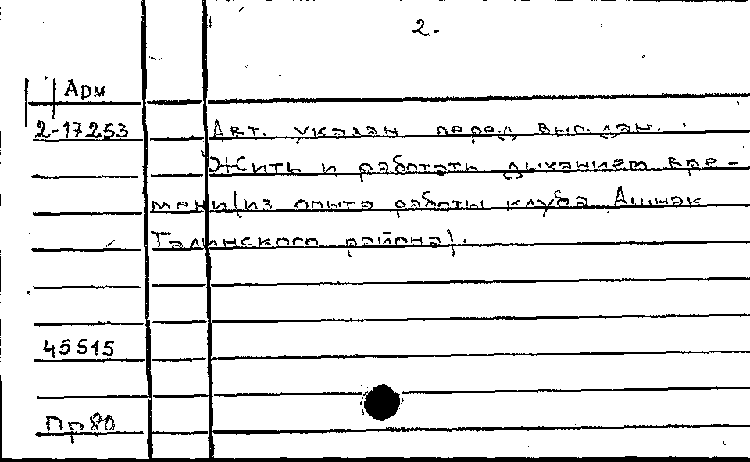 2.
Арм
2-17253
Авт. указан перед вып. дан.
Жить и работать дыханием вре-
мени (из опыта работы клуба Ашнак
Талинского района).
45515
Пр80